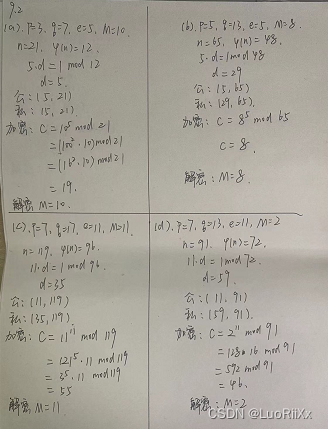 9.2
(a). p=3, q=7, e=5, M=10.
n=21, φ(n)=12.
5·d=1 mod 12
d=5.
公: (5, 21)
私: (5, 21)
加密: C=10⁵ mod 21
=(100²·10) mod 21
=(16²·10) mod 21
=19.
解密 M=10.
(b). p=5, q=13, e=5, M=8.
n=65, φ(n)=48.
5·d=1 mod 48
d=29
公: (5, 65)
私: (29, 65).
加密: C=8⁵ mod 65
C=8.
解密: M=8.
(c). p=7, q=17, e=11, M=11.
n=119, φ(n)=96.
11·d=1 mod 96.
d=35
公: (11, 119)
私: (35, 119)
加密: C=11¹¹ mod 119
=121⁵·11 mod 119
=3⁵·11 mod 119
=55
解密 M=11
(d). p=7, q=13, e=11, M=2
n=91. φ(n)=72.
11·d=1 mod 72.
d=59.
公: (11, 91)
私: (59, 91).
加密: C=2¹¹ mod 91
=128·16 mod 91
=592 mod 91
=46.
解密: M=2
CSDN @LuoRiIXx